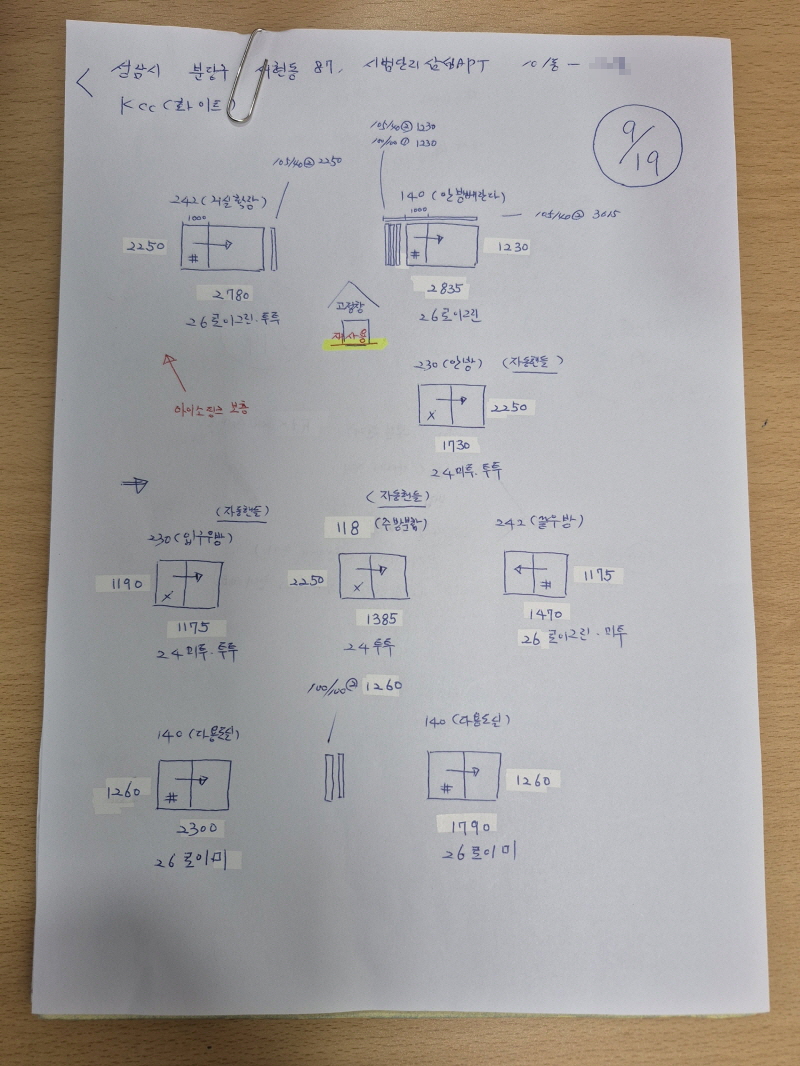 성남시 분당구 서현동 87, 시범단지삼성APT 101동 -
KCC(화이트)
9/19
105/40② 1230
100/100① 1230
105/40② 2250
242(거실확장)
1000
2250
2780
26로이그린.투투
140(안방베란다)
1000
105/40② 3015
1230
2835
26로이그린
고정창
재사용
230(안방) (자동핸들)
2250
1730
24미투.투투
아이소핑크 보충
(자동핸들)
230(입구방)
1190
1175
24미투.투투
(자동핸들)
118 (주방분합)
2250
1385
24투투
242(끝우방)
1175
1470
26로이그린.미투
100/100② 1260
140(다용도실)
1260
2300
26로이미
140(다용도실)
1260
1790
26로이미